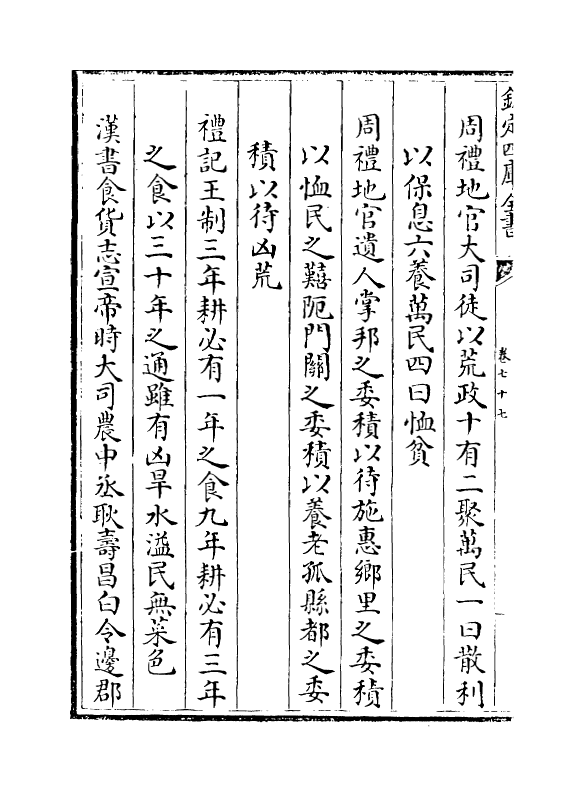 欽定四庫全書
卷七十七
周禮地官大司徒以荒政十有二聚萬民一曰散利
以保息六養萬民四曰恤貧
周禮地官遺人掌邦之委積以待施惠鄉里之委積
以恤民之囏阨門關之委積以養老孤縣都之委
積以待凶荒
禮記王制三年耕必有一年之食九年耕必有三年
之食以三十年之通雖有凶旱水溢民無菜色
漢書食貨志宣帝時大司農中丞耿壽昌白令邊郡